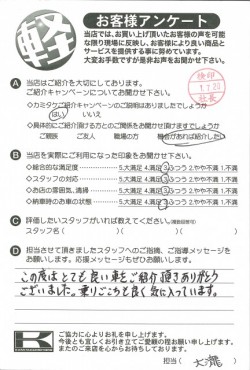 軽
お客様アンケート
当店では、お買い上げ頂いたお客様の声を可能
な限り現場に反映し、お客様により良い商品と
サービスを提供する事に努めています。
大変お手数ですが是非お声をお聞かせ下さい。
検印
1.7.20
社長
A 当店はご紹介を大切にしております。
ご紹介キャンペーンについてお聞かせ下さい。
◇カミタケご紹介キャンペーンのご説明はありましたでしょうか
はい いいえ
◇具体的にご紹介頂ける方との関係をお聞かせ頂けますでしょうか
ご親族 ご友人 職場の方 機会があれば紹介したい
B 当店を実際にご利用になった印象をお聞かせ下さい。
◇総合的な満足度 5.大満足 4.満足 3.ふつう 2.やや不満 1.不満
◇スタッフの対応 5.大満足 4.満足 3.ふつう 2.やや不満 1.不満
◇お店の雰囲気、清掃 5.大満足 4.満足 3.ふつう 2.やや不満 1.不満
◇納車時のお車の状態 5.大満足 4.満足 3.ふつう 2.やや不満 1.不満
C 評価したいスタッフがいれば教えてください。(複数回答可)
スタッフ名( )( )( )
D 担当させて頂きましたスタッフへのご指摘、ご指導メッセージを
お願いします。応援メッセージもぜひお願いします。
この度はとても良い車をご紹介頂きありがとう
ございました。乗りごこちも良く気に入っています。
K
ご協力に心よりお礼を申し上げます。
今後とも宜しくお引き立てご愛顧の程お願い申し上げます。
またのご来店を心からお待ちしております。
担当( 大瀧 )